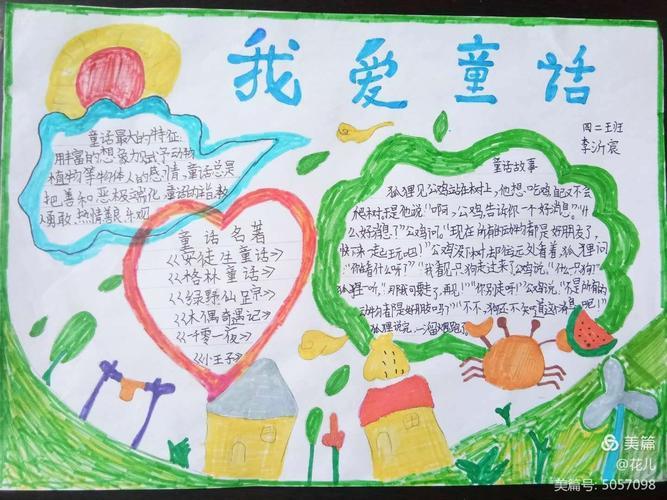 我爱童话
四二班
李沂宸
童话最大的特征:
用丰富的想象力式予动物
植物等物体人的感情,童话总是
把善和恶极端化,童话的指教
勇敢,热情善良乐观
童话名著
《安徒生童话》
《格林童话》
《绿野仙踪》
《木偶奇遇记》
《一千零一夜》
《小王子》
童话故事
狐狸见公鸡站在树上,他想吃鸡自己又不会
爬树,于是他说"啊,公鸡,告诉你一个好消息。""什
么好消息?"公鸡问。"现在所有的动物都是好朋友了,
快下来一起玩吧!"公鸡没下树,却往远处看着,狐狸问
"你看什么呀?""我看见只狗走过来了"公鸡说。"什么?狗"
狐狸一听,"那我可要走了,再见!""你别走呀!"公鸡说,"不是所有的
动物都是好朋友吗?""不,不,狗还不知道这个消息呢!"
狐狸说完,一溜烟跑了
美篇
@花儿
美篇号: 5057098